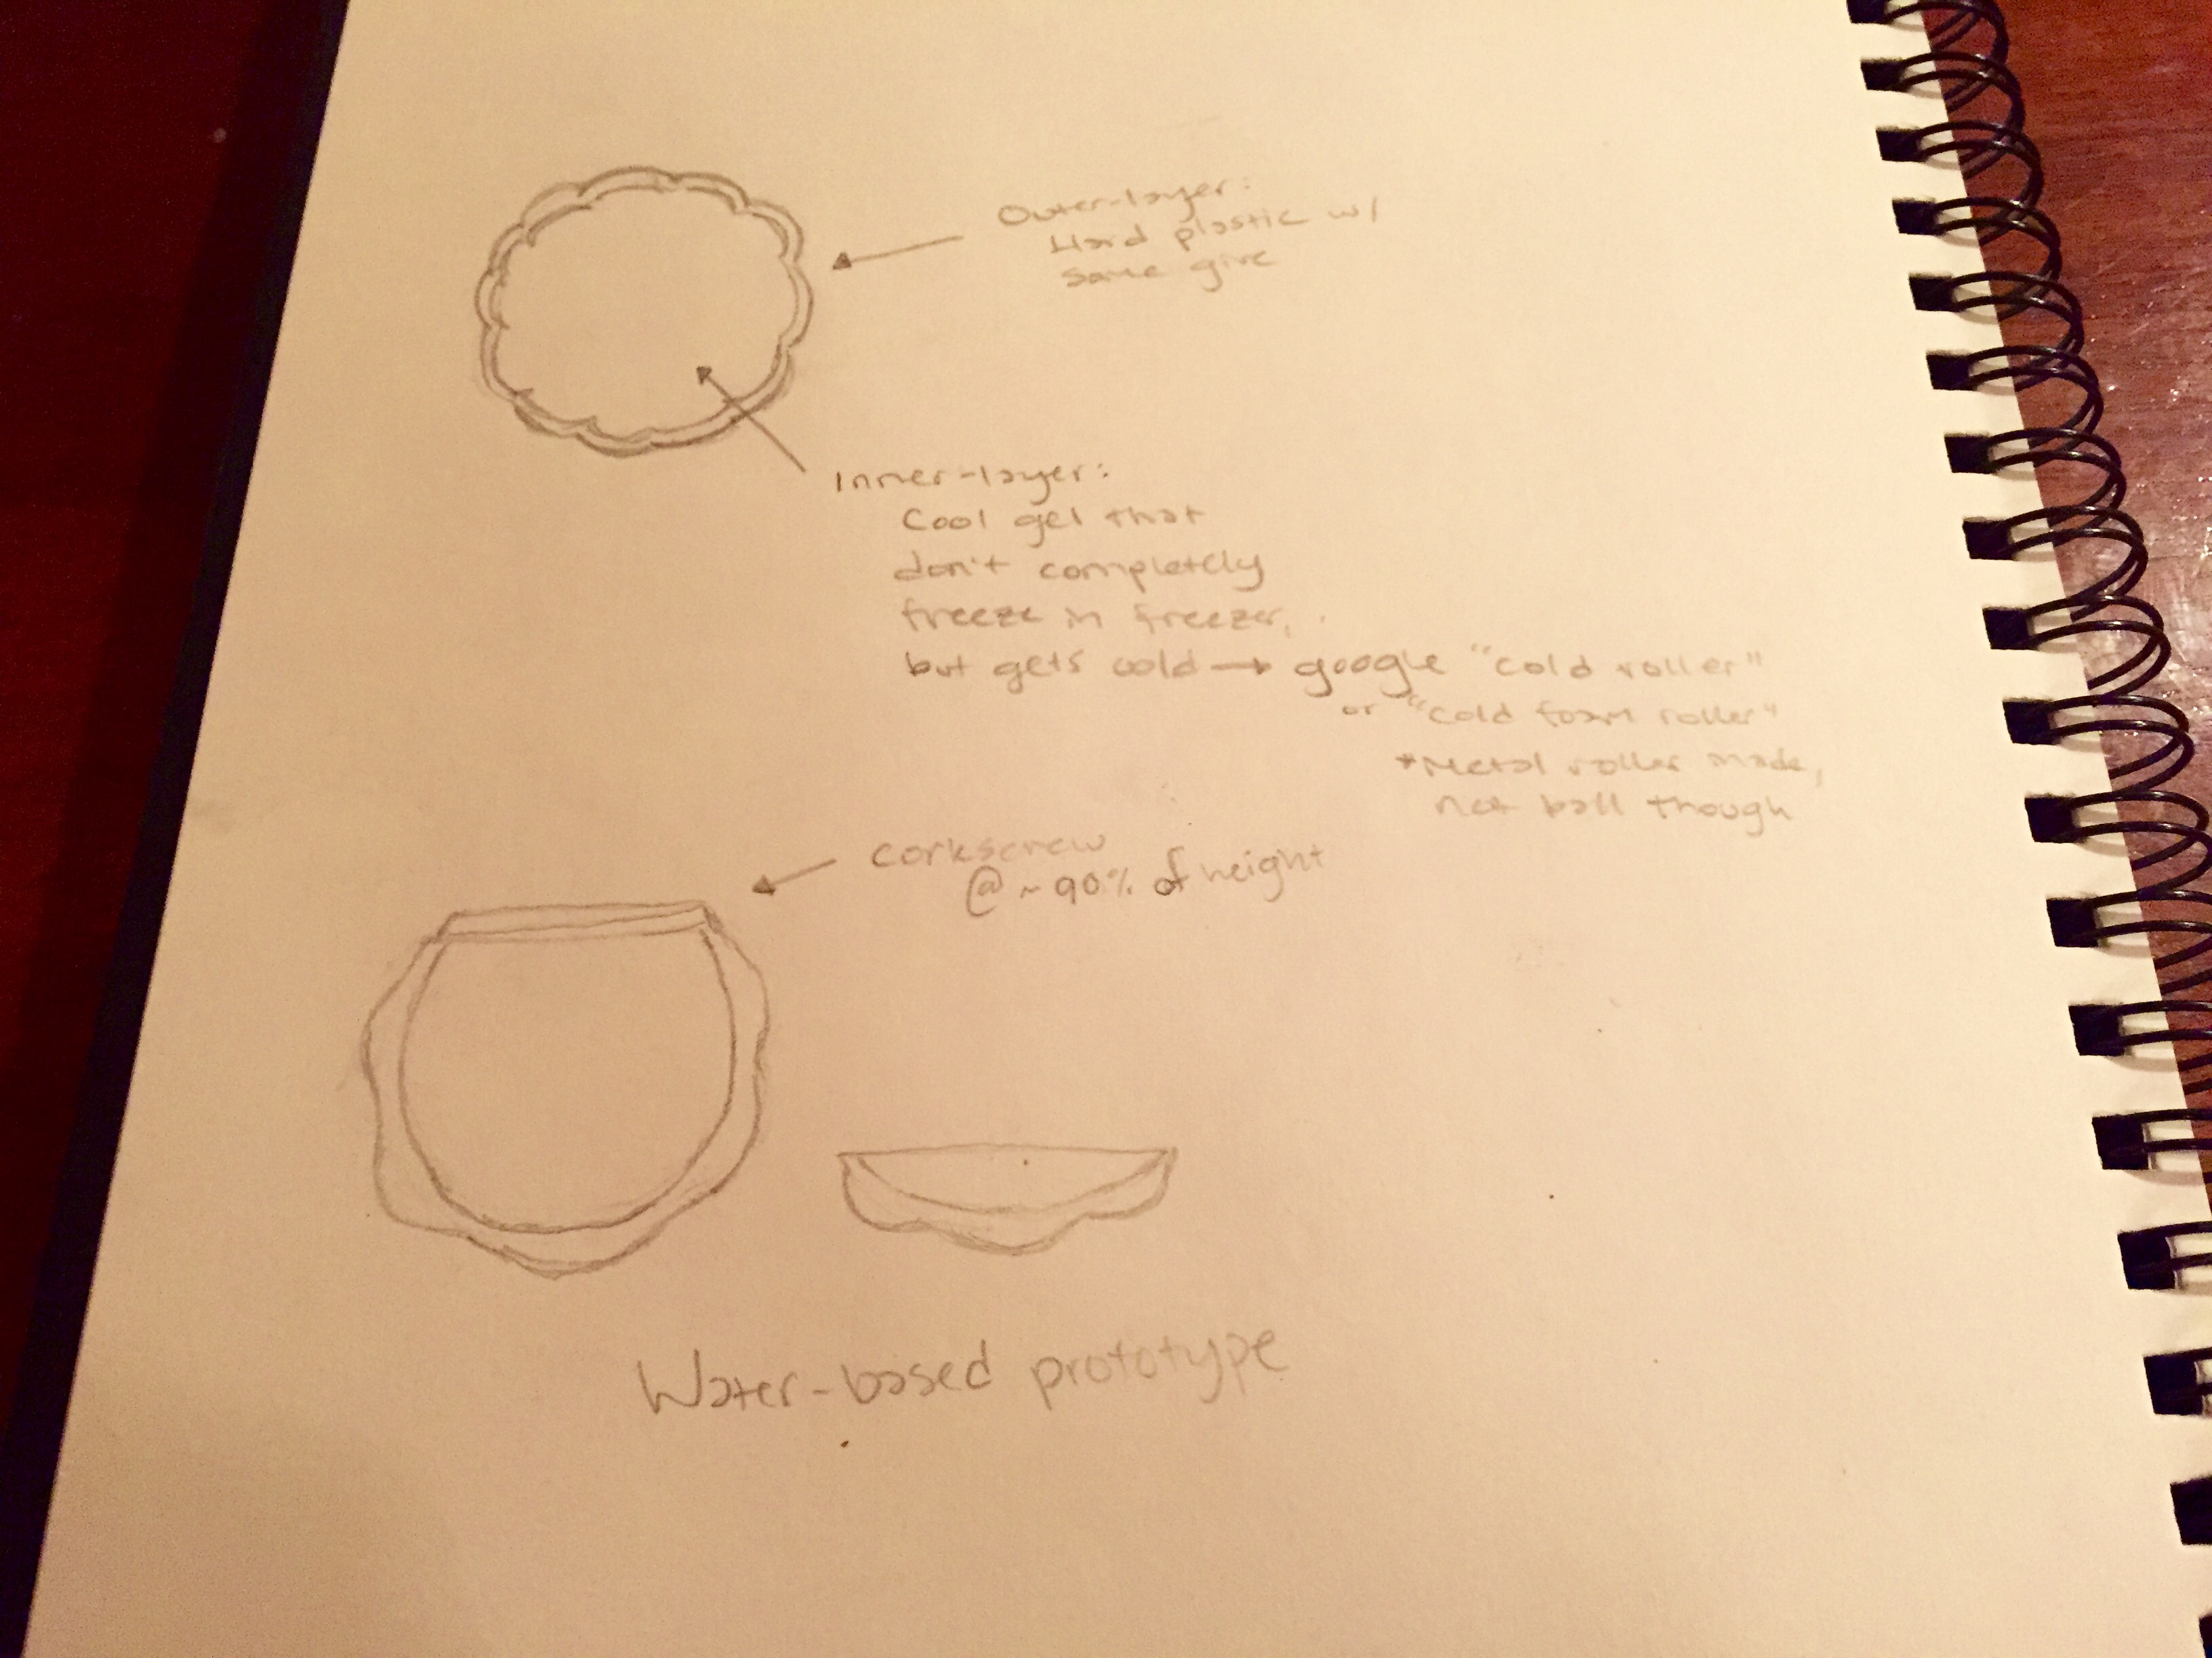 Outer-layer:
Hard plastic w/
some give
Inner-layer:
Cool gel that
don't completely
freeze in freezer,
but gets cold → google "cold roller"
or "cold foam roller"
*Metal roller made,
not ball though
corkscrew
@ ~90% of height
Water-based prototype